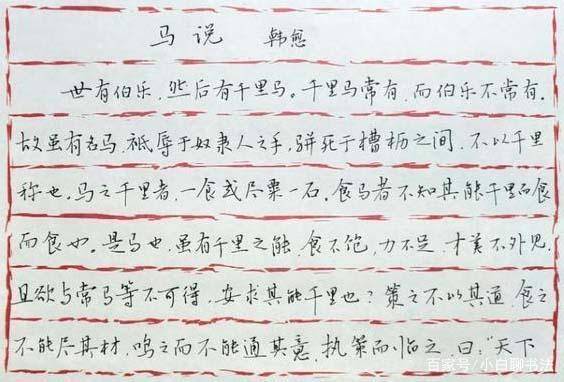 马说 韩愈
世有伯乐，然后有千里马。千里马常有，而伯乐不常有。
故虽有名马，祗辱于奴隶人之手，骈死于槽枥之间，不以千里
称也。马之千里者，一食或尽粟一石。食马者不知其能千里而食
而食也。是马也，虽有千里之能，食不饱，力不足，才美不外见，
且欲与常马等不可得，安求其能千里也？策之不以其道，食之
不能尽其材，鸣之而不能通其意，执策而临之，曰：“天下
百家号/小白聊书法